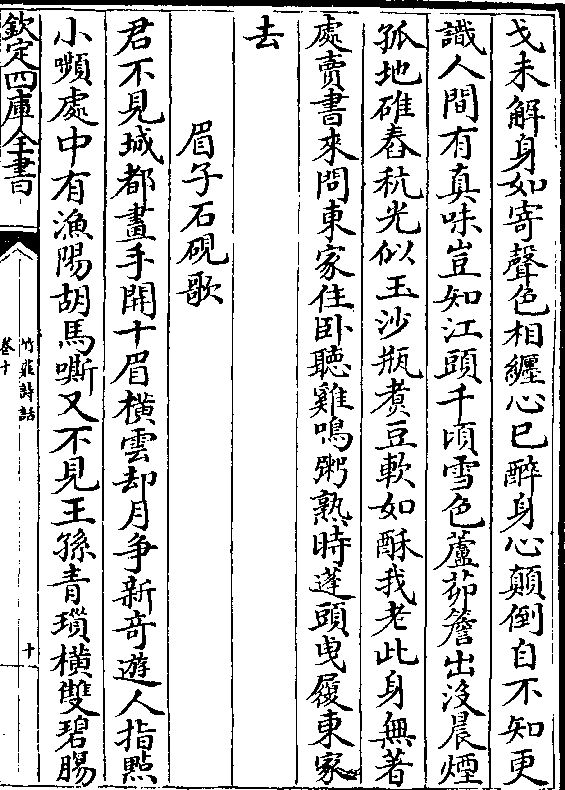 戈未解身如寄聲色相纏心已醉身心顛倒自不知更
識人間有真味豈知江頭千頃雪色蘆茆簷出沒晨煙
孤地碓舂秔光似玉沙瓶煑豆軟如酥我老此身無著
處賣書來問東家住臥聽雞鳴粥熟時蓬頭曳履東家
去
眉子石硯歌
君不見城都畫手開十眉橫雲却月争新竒遊人指㸃
小嚬處中有漁陽胡馬嘶又不見王孫青瑣橫雙碧腸
欽定四庫全書
竹莊詩話
卷十
十